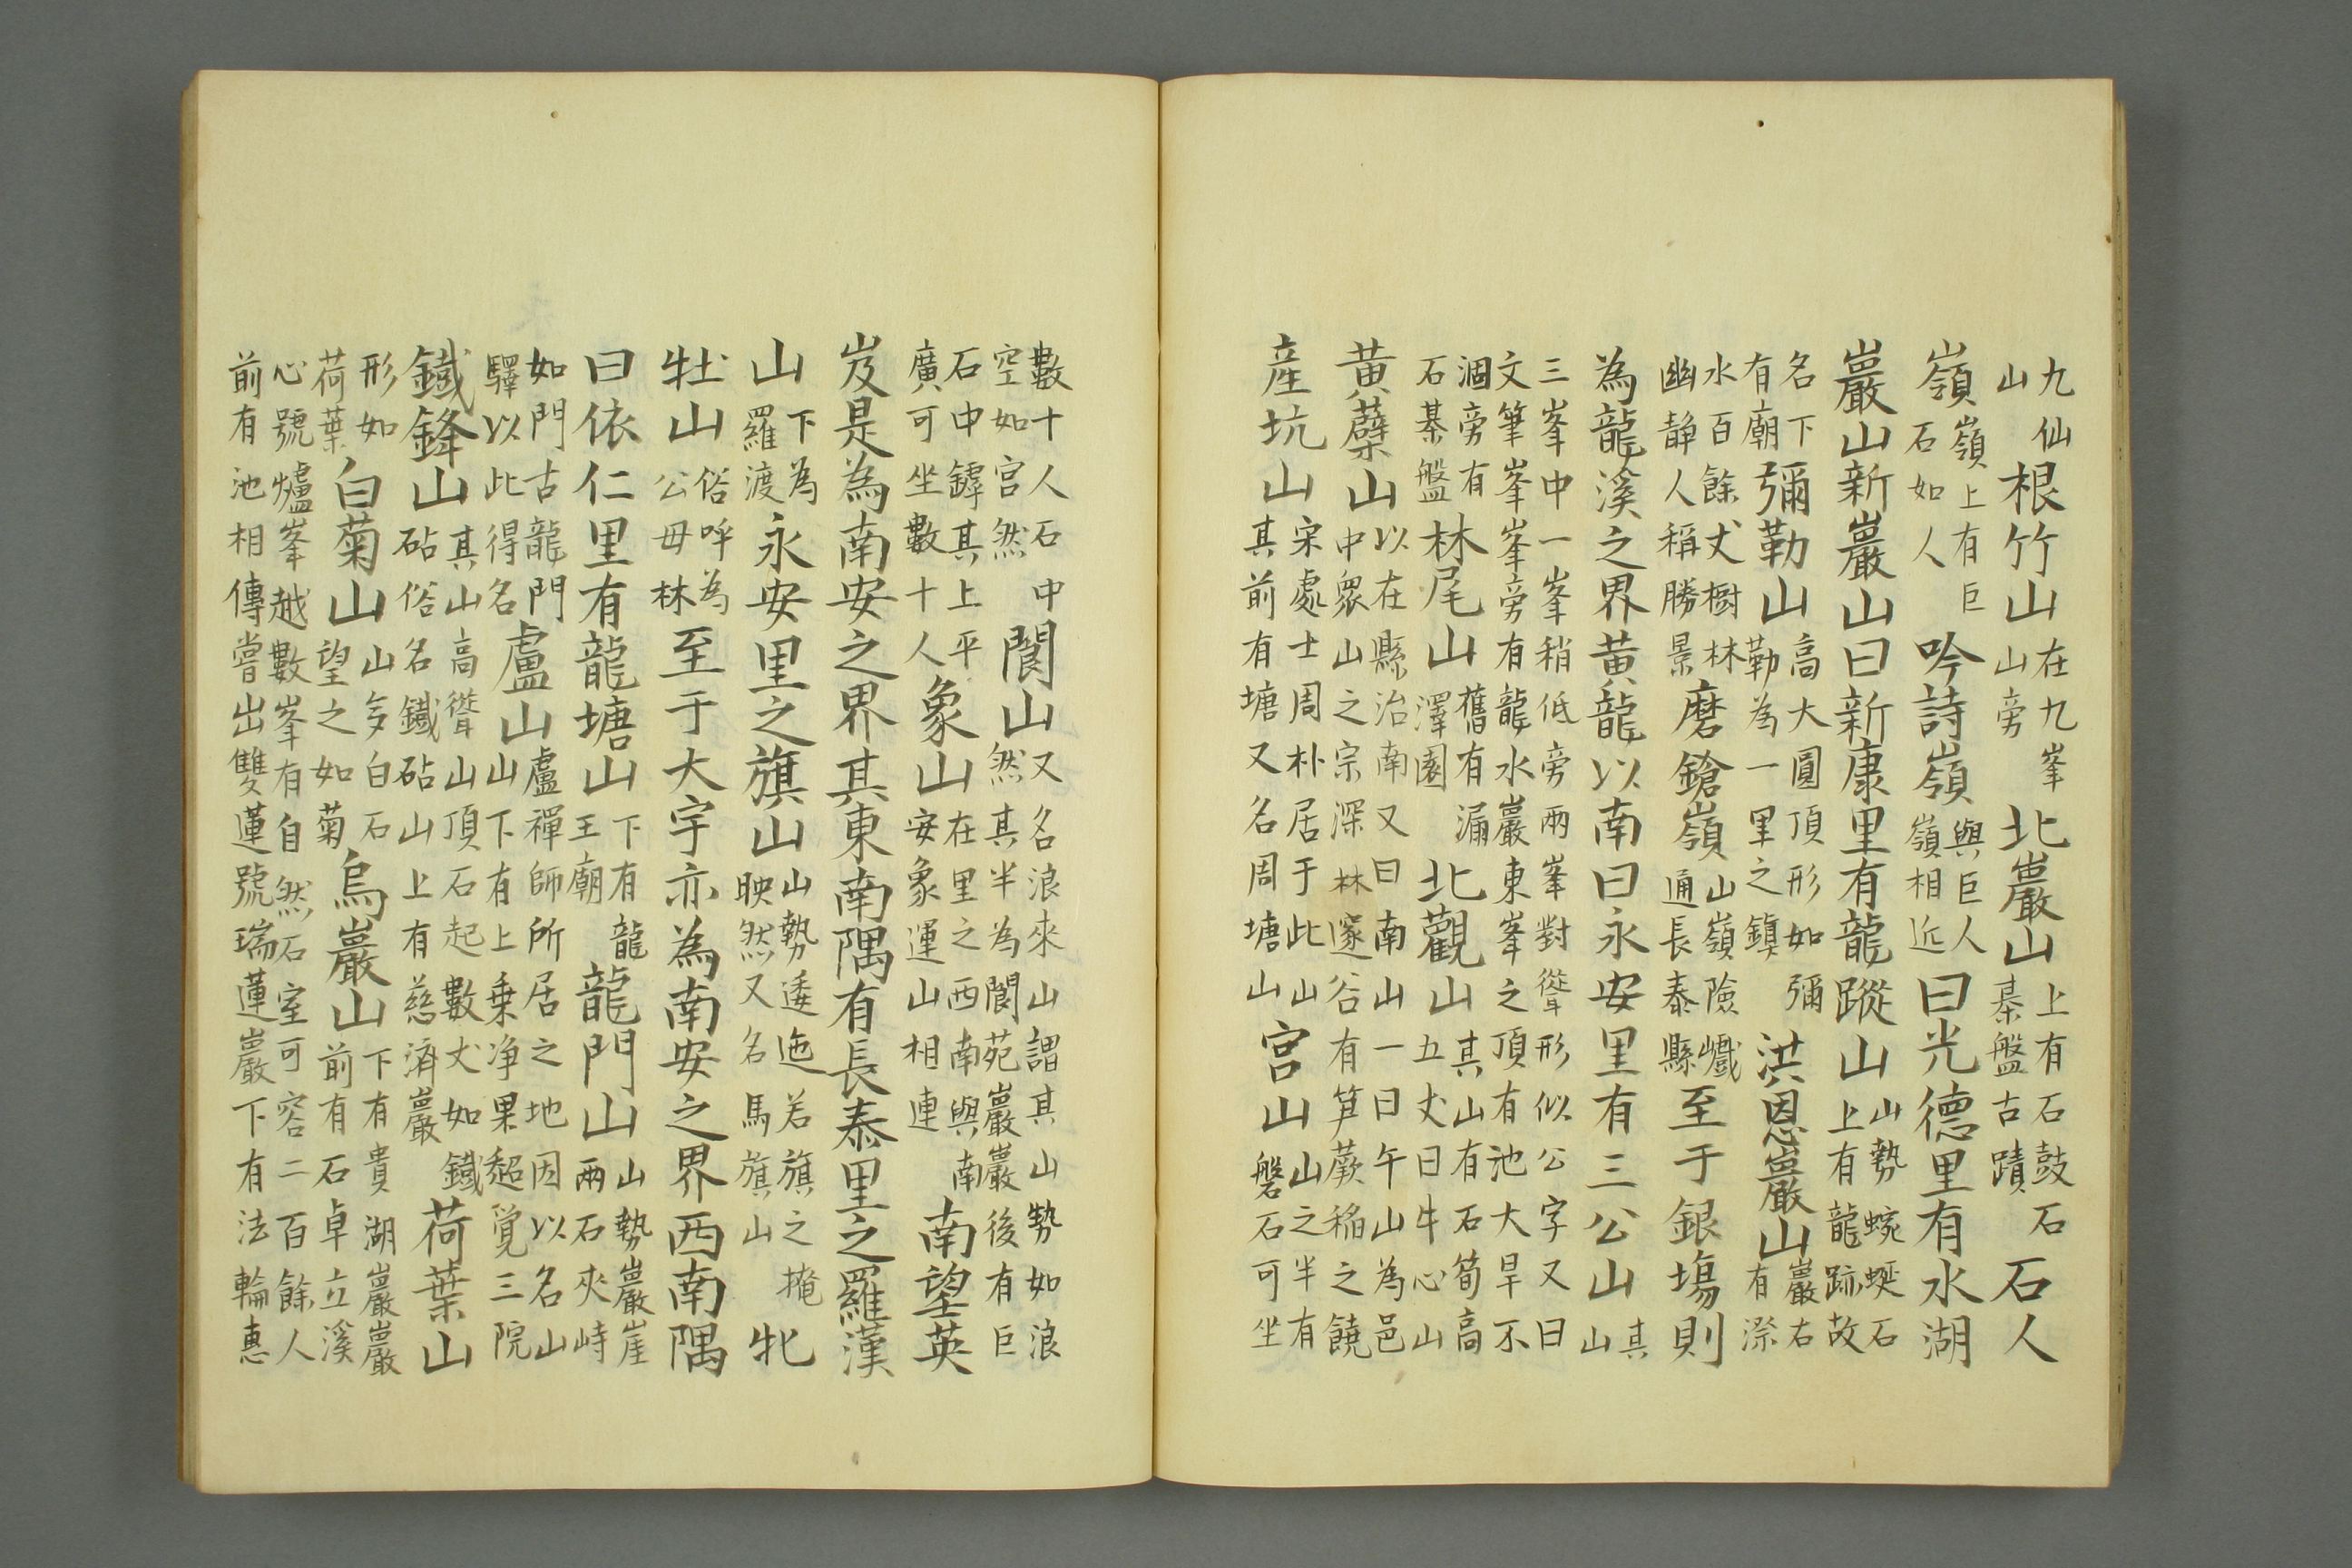 九仙山根竹山在九峯山旁北巖山上有石鼓石棊盤古蹟石人
嶺嶺上有巨石如人吟詩嶺與巨人嶺相近曰光德里有水湖
巖山新巖山曰新康里有龍蹤山山勢蜿蜒石上有龍跡故
名下有廟彌勒山高大圓頂形如彌勒為一里之鎮洪恩巖山巖右有深
水百餘丈樹林幽靜人稱勝景磨鎗嶺山嶺險巇通長泰縣至于銀塲則
為龍溪之界黃龍以南曰永安里有三公山其山
三峯中一峯稍低旁兩峯對聳形似公字又曰文筆峯峯旁有龍水巖東峯之頂有池大旱不
涸旁有石棊盤林尾山舊有漏澤園北觀山其山有石筍高五丈曰牛心山
黃蘗山以在縣治南又曰南山一曰午山為邑中衆山之宗深林邃谷有笋蕨稲之饒
産坑山宋處士周朴居于此山其前有塘又名周塘山宮山山之半有磐石可坐
數十人石中空如宮然閬山又名浪來山謂其山勢如浪然其半為閬苑巖巖後有巨
石中罅其上平廣可坐數十人象山在里之西南與南安象運山相連南望英
岌是為南安之界其東南隅有長泰里之羅漢
山下為羅渡永安里之旗山山勢逶迤若旗之掩映然又名馬旗山牝
牡山俗呼為公母林至于大宇亦為南安之界西南隅
曰依仁里有龍塘山下有龍王廟龍門山山勢巖崖兩石夾峙
如門古龍門驛以此得名盧山盧禪師所居之地因以名山山下有上乗净果超覺三院
鐵鋒山其山高聳山頂石起數丈如鐵砧俗名鐵砧山上有慈濟巖荷葉山
形如荷葉白菊山山多白石望之如菊烏巖山下有貴湖巖巖前有石卓立溪
心號爐峯越數峯有自然石室可容二百餘人前有池相傳嘗出雙蓮號瑞蓮巖下有法輪惠